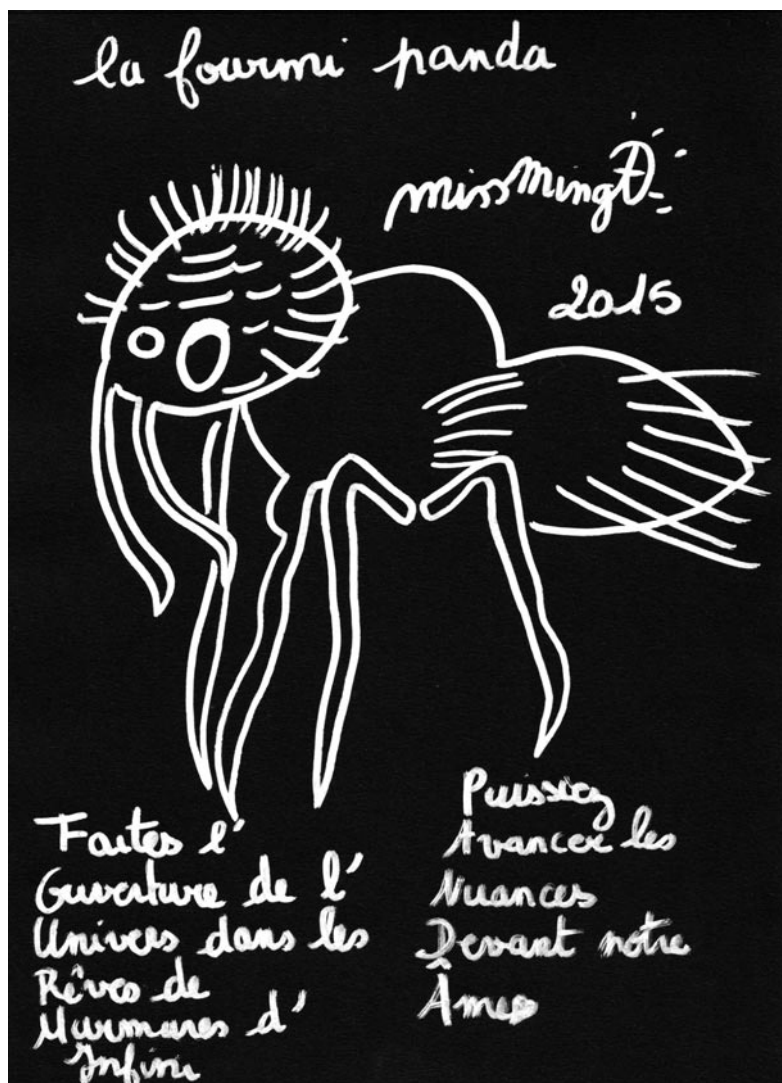 la fourmi panda
missming
2015
Faites l'
Ouverture de l'
Univers dans les
Rêves de
Murmures d'
Infini
Puissiez
Avancer les
Nuances
Devant notre
Âme